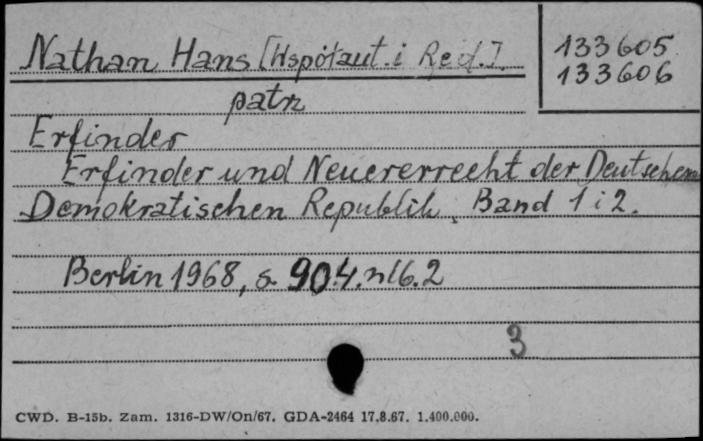 Nathan Hans [Wspótaut. i Red.]
133605
133606
patrz
Erfinder
Erfinder und Neuererrecht der Deutschen
Demokratischen Republik. Band 1 i 2.
Berlin 1968, s. 904. nlb. 2
3
CWD. B-15b. Zam. 1316-DW/On/67. GDA-2464 17.8.67. 1.400.000.